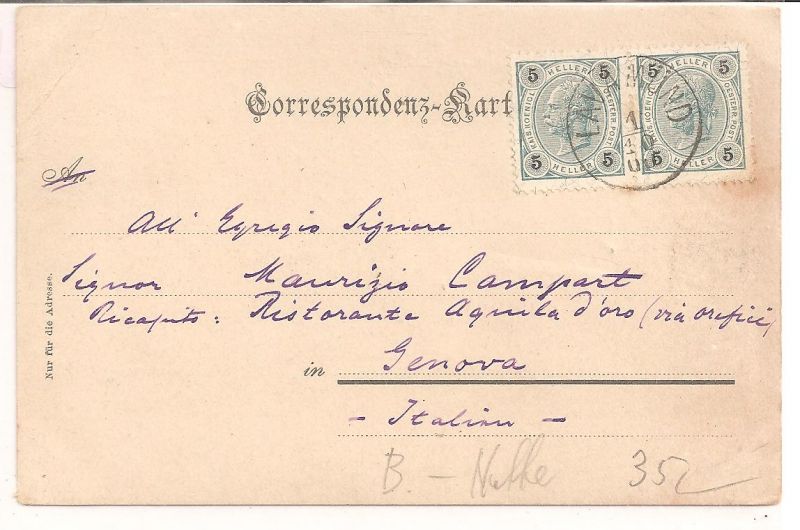 Correspondenz-Kart
5 HELLER 5
KAIS. KOENIGL. OESTERR. POST.
5 HELLER 5
5 HELLER 5
KAIS. KOENIGL. OESTERR. POST.
5 HELLER 5
MÜND
1
An
All' Egregio Signore
Signor Maurizio Campart
Ricapito: Ristorante Aquila d'oro (via orefici)
in Genova
- Italien -
Nur für die Adresse.
B. -
35